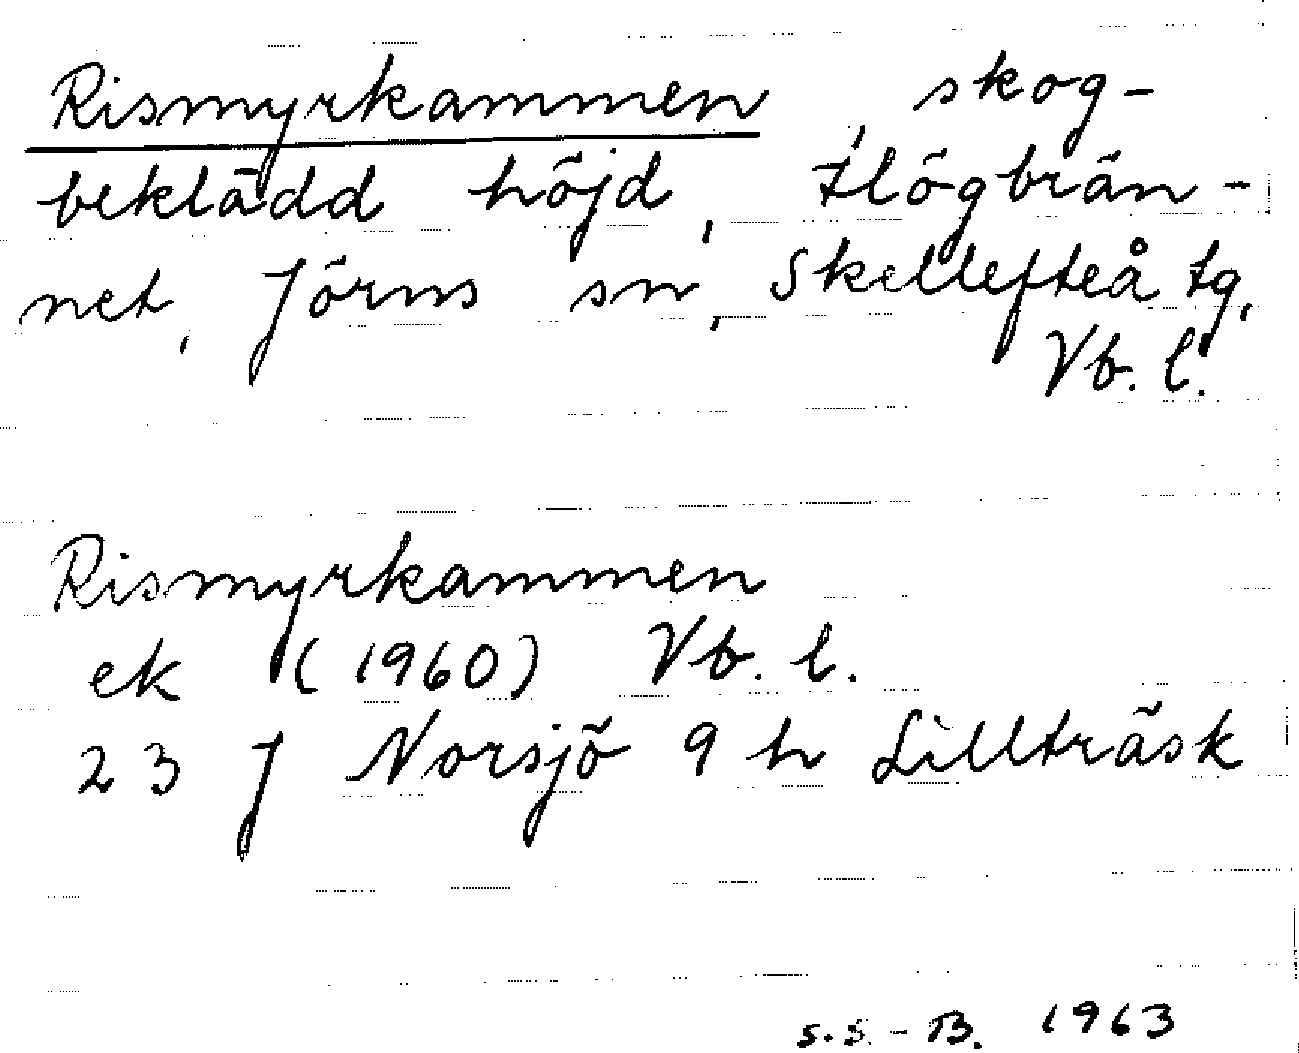 Rismyrkammen, skog-
beklädd höjd, Högbrän-
net, Jörns sn, Skellefteå tg,
Vb. l.
Rismyrkammen
ek (1960) Vb. l.
23 J Norsjö 9 h Lillträsk
S.S.-B. 1963